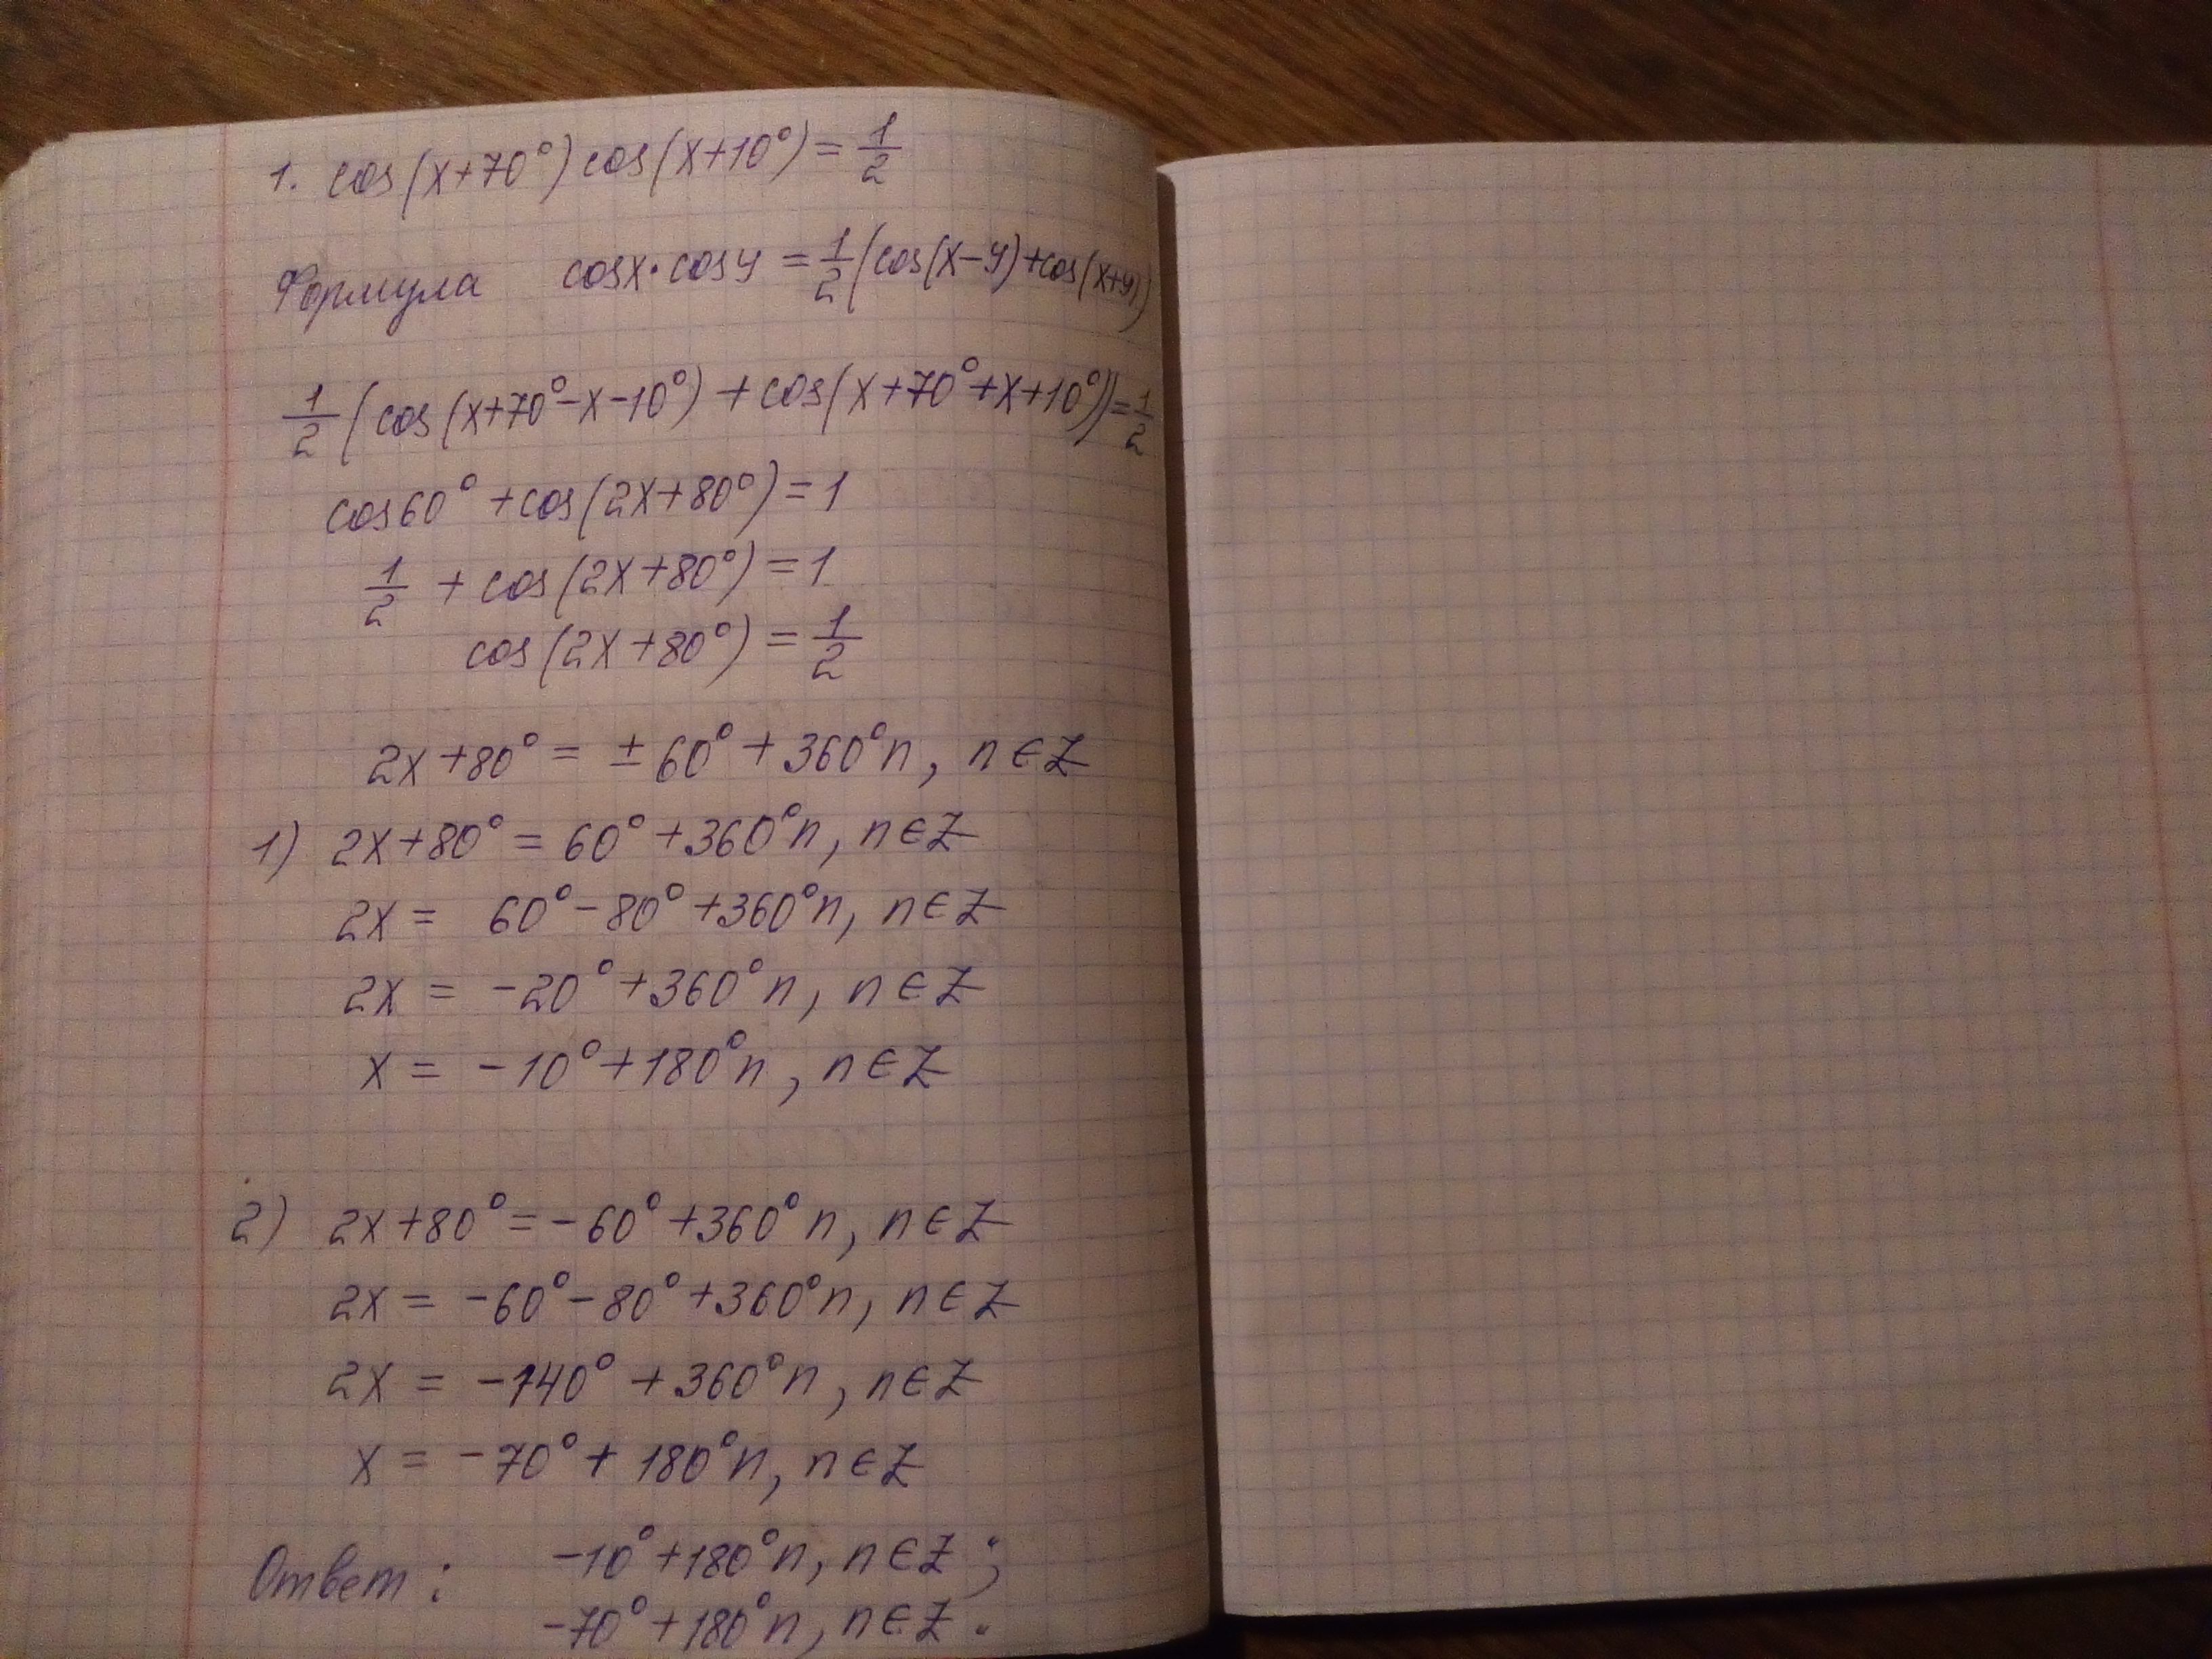 1. cos(x+70°)cos(x+10°)=1/2
Формула cosx·cosy=1/2(cos(x-y)+cos(x+y))
1/2(cos(x+70°-x-10°)+cos(x+70°+x+10°))=1/2
cos60°+cos(2x+80°)=1
1/2+cos(2x+80°)=1
cos(2x+80°)=1/2
2x+80°=±60°+360°n, n∈Z
1) 2x+80°=60°+360°n, n∈Z
2x=60°-80°+360°n, n∈Z
2x=-20°+360°n, n∈Z
x=-10°+180°n, n∈Z
2) 2x+80°=-60°+360°n, n∈Z
2x=-60°-80°+360°n, n∈Z
2x=-140°+360°n, n∈Z
x=-70°+180°n, n∈Z
Ответ: -10°+180°n, n∈Z;
-70°+180°n, n∈Z.